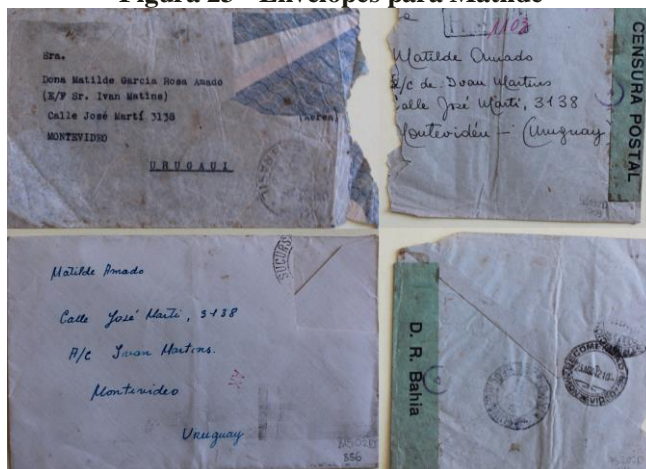 Figura 23 - Envelopes para Matilde
Sra.
Dona Matilde Garcia Rosa Amado
(E/F Sr. Ivan Matins)
Calle José Martí 3138
(Aerea)
MONTEVIDEO
URUGAUI
1103
Matilde Amado
A/c de Ivan Martins
Calle José Martí, 3138
Montevidéu - (Uruguay)
CENSURA POSTAL
SUCURS
Matilde Amado
Calle José Martí, 3138
A/C Ivan Martins.
Montevideo
Uruguay
356
D. R. Bahia